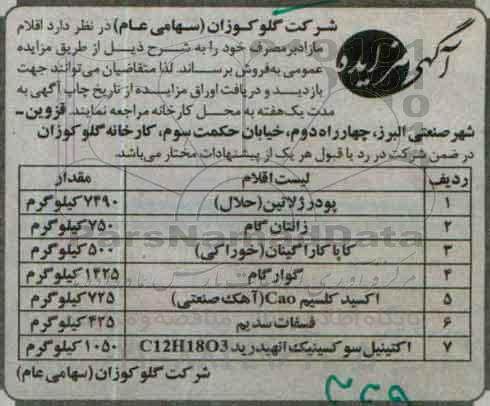 آگهی مزایده
شرکت گلوکوزان (سهامی عام) در نظر دارد اقلام
مازاد بر مصرف خود را به شرح ذیل از طریق مزایده
عمومی به فروش برساند. لذا متقاضیان می‌توانند جهت
بازدید و دریافت اوراق مزایده از تاریخ چاپ آگهی به
مدت یک هفته به محل کارخانه مراجعه نمایند. قزوین ـ
شهر صنعتی البرز، چهارراه دوم، خیابان حکمت سوم، کارخانه گلوکوزان
در ضمن شرکت در رد یا قبول هر یک از پیشنهادات مختار می‌باشد.
ردیف لیست اقلام مقدار
۱ پودر ژلاتین (حلال) ۷۴۹۰ کیلوگرم
۲ زانتان گام ۷۵۰ کیلوگرم
۳ کاپا کاراگینان (خوراکی) ۵۰۰ کیلوگرم
۴ گوار گام ۱۴۲۵ کیلوگرم
۵ اکسید کلسیم Cao (آهک صنعتی) ۷۲۵ کیلوگرم
۶ فسفات سدیم ۴۲۵ کیلوگرم
۷ اکتینیل سوکسینیک انهیدرید C12H18O3 ۱۰۵۰ کیلوگرم
شرکت گلوکوزان (سهامی عام)